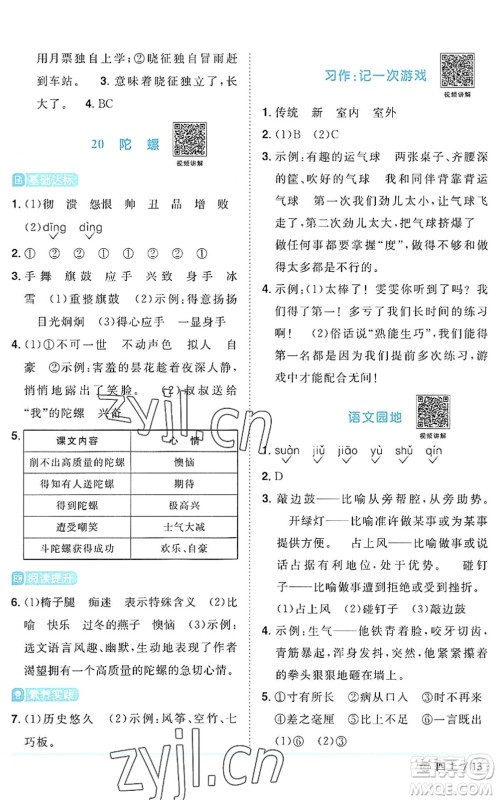 用月票独自上学；②晓征独自冒雨赶
到车站。 3. 意味着晓征独立、勇敢、成
长大了。 4. BC
视频讲解
20 陀 螺
基础达标
1. (1)彻 溃 怨恨 帅 丑 品 增 败
(2)dīng dǐng
2. ① ② ① ② ① ②
3. 手舞 旗鼓 应手 兴致 身手 冰
雪 (1)重整旗鼓 (2)示例：得意扬扬
目光炯炯 (3)得心应手 大显身手
4. (1)①不可一世 ②不动声色 拟人 自
豪 示例：害羞的昙花趁着夜深人静，
悄悄地露出了笑脸。 (2)叔叔送给
“我”的陀螺 兴奋
5.
课文内容 心 情
削不出高质量的陀螺 懊恼
得知有人送陀螺 期待
得到陀螺 极高兴
遭受嘲笑 士气大减
斗陀螺获得成功 欢乐、自豪
阅读提升
6. (1)椅子腿 痴迷 表示特殊含义 (2)比
喻 快乐 过冬的燕子 (3)示例：
选文语言风趣、通俗，生动地写出了作者
渴望拥有一个高质量的陀螺的急切心情。
素养实践
7. (1)历史悠久 (2)示例：风筝、空竹、七
巧板。
习作：记一次游戏
视频讲解
1. 传统 新 室内 室外
2. (1)B (2)①③④
3. 示例：有趣的运气球 两张桌子、齐腰深
的筐、吹好的气球 我和同伴背靠背运
气球 第一次我们劲儿太小，让气球飞
走了。第二次劲儿太大，气球挤爆了
做任何事都要掌握“度”，我们都有自
己的优势和不足，学会相互配合，取长
补短是不行的。
4. 示例：(1)太棒了！雯雯你看到了吗？我
们成功了！我们终于成功了！这多亏
了我们平时的练习呀！果然要多练
习！ (2)俗话说“熟能生巧”，我们要想
在游戏中提高水平就要多次练习，游
戏中方能无往不胜。
语文园地
视频讲解
1. suàn jiǔ jiāo yù shǔ qín
2. D
3. 敲边鼓——比喻从旁帮腔，从旁助势。
开绿灯——比喻准许做某事或为做某事
提供方便。 占上风——比喻做事或
说话占有利的地位，占优势。 碰钉
子——比喻做事遭到拒绝或受到挫折。
(1)占上风 (2)碰钉子 (3)敲边鼓
4. 示例：生气——他铁青着脸，咬牙切齿，
青筋暴出，浑身发抖，突然，将握得紧紧
的拳头狠狠砸在墙上。
5. (1)①心急 ②中途 ③病没有治好
④差别
(2)② (3)③
四上 13
zyjl.cn
zyjl.cn